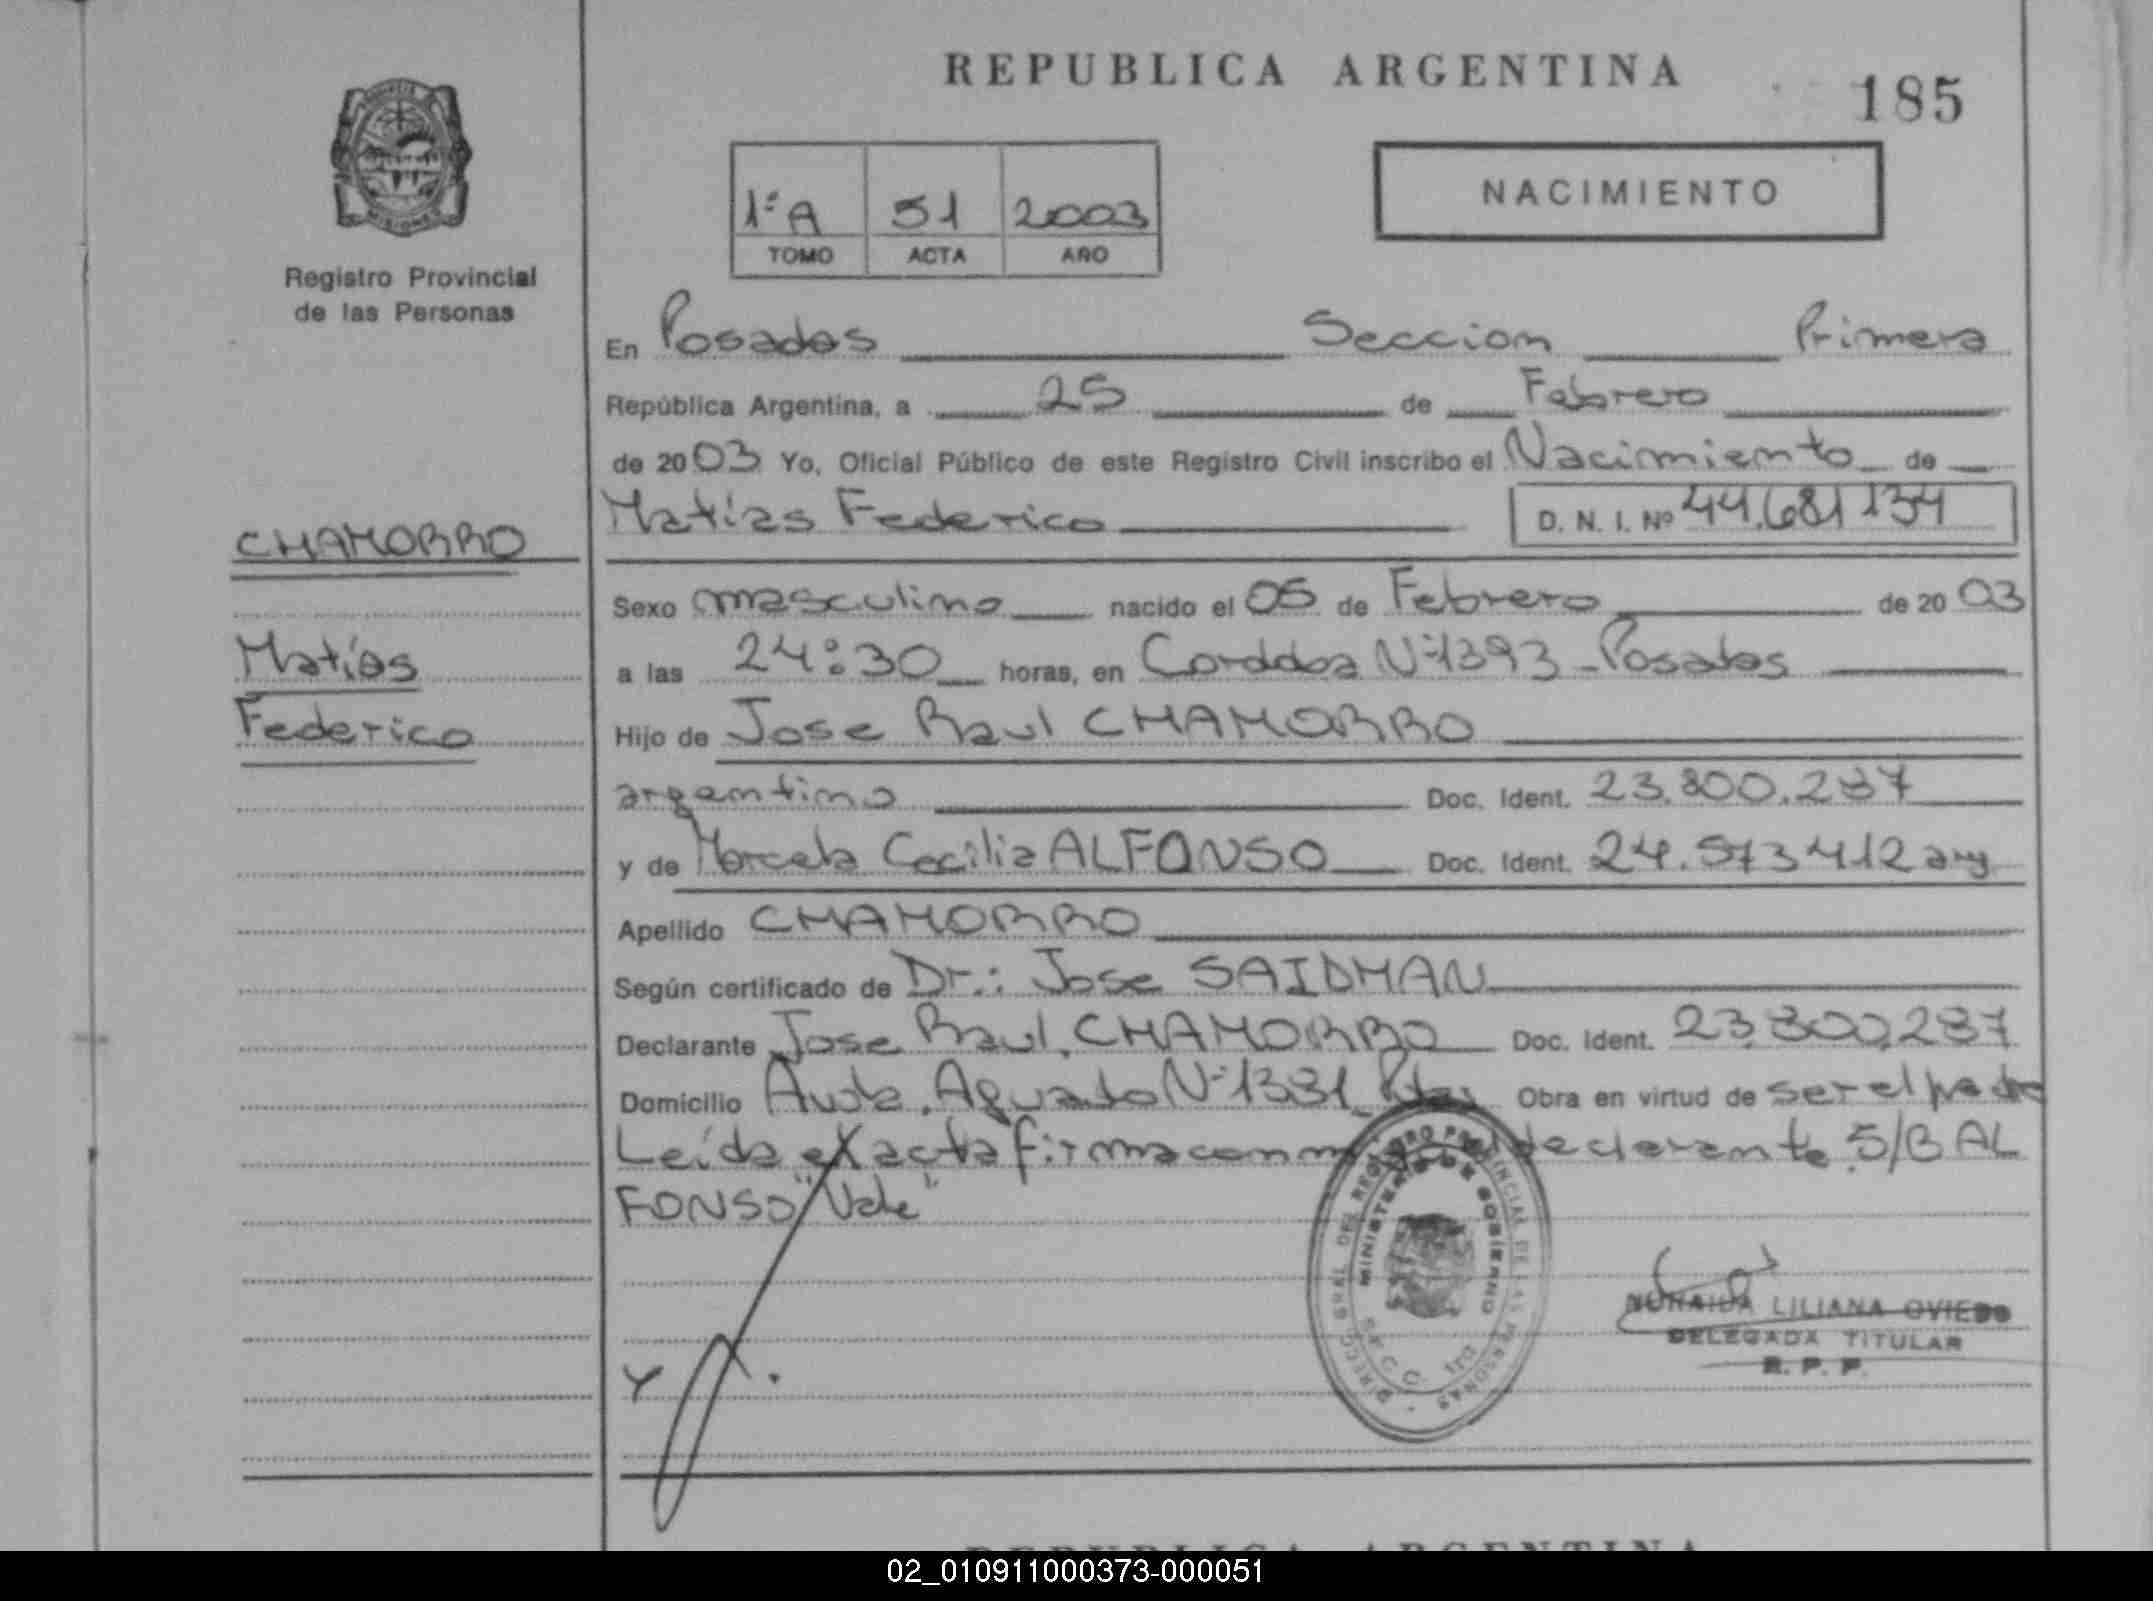 REPUBLICA ARGENTINA
185
1ºA 51 2003
TOMO ACTA AÑO
NACIMIENTO
Registro Provincial
de las Personas
En Posadas Seccion Primera
República Argentina, a 25 de Febrero
de 2003 Yo, Oficial Público de este Registro Civil inscribo el Nacimiento de
CHAMORRO
Matías Federico D. N. I. Nº 44.681 134
Sexo masculino nacido el 05 de Febrero de 2003
Matías
a las 24:30 horas, en Cordoba Nº1393 - Posadas
Federico
Hijo de Jose Raul CHAMORRO
argentino Doc. Ident. 23.800.237
y de Marcela Cecilia ALFONSO Doc. Ident. 24.573412 arg
Apellido CHAMORRO
Según certificado de Dr.: Jose SAIDMAN
Declarante Jose Raul CHAMORRO Doc. Ident. 23.800.237
Domicilio Avda. Aguado Nº1331 Pdas Obra en virtud de ser el padre
Leída exacta firma conm declarante S/B AL
FONSO "Vale"
DIRECC. GRAL DEL REGISTRO PROVINCIAL DE LAS PERSONAS
MINISTERIO DE GOBIERNO
LILIANA OVIEDO
DELEGADA TITULAR
R. P. P.
Y
REPUBLICA ARGENTINA
02_010911000373-000051